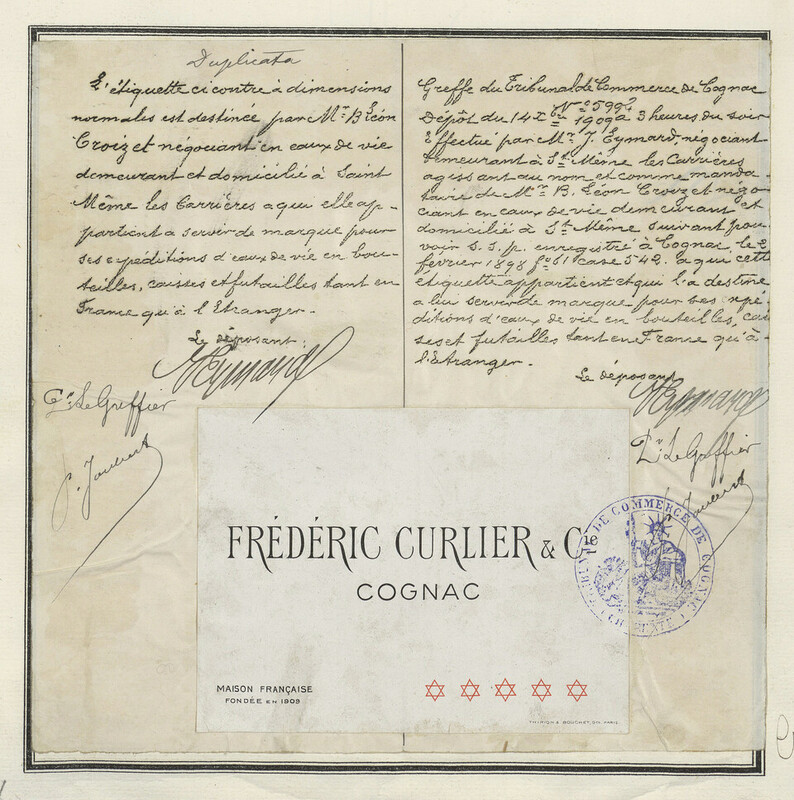 Duplicata
L'étiquette ci contre à dimensions
normales est destinée par Mr B Léon
Croizet négociant en eaux de vie
demeurant et domicilié à Saint
Même les Carrières a qui elle ap-
partient a servir de marque pour
ses expéditions d'eaux de vie en bou-
teilles, caisses et futailles tant en
France qu'à l'Etranger.
Le déposant:
JEymard
Pr Le Greffier
P. Joubert
Greffe du Tribunal de Commerce de Cognac
No 5992
Dépôt du 14 Xbre 1909 à 3 heures du soir
Effectué par Mr J. Eymard, négociant
demeurant à St Même les Carrières
agissant au nom et comme manda-
taire de Mr B. Léon Croizet négo-
ciant en eaux de vie demeurant et
domicilié à St Même suivant pou-
voir s.s.p. enregistré à Cognac, le 2
février 1898 fo 51 case 542. a qui cette
étiquette appartient et qui l'a destine
a lui servir de marque pour ses expé-
ditions d'eaux de vie en bouteilles, cais
ses et futailles tant en France qu'à
l'Etranger.
Le déposant
JEymard
Pr Le Greffier
Joubert
FRÉDÉRIC CURLIER & Cie
COGNAC
MAISON FRANÇAISE
FONDÉE EN 1909
THIRION & BOUCHET, GR. PARIS
TRIBUNAL DE COMMERCE DE COGNAC
CHARENTE